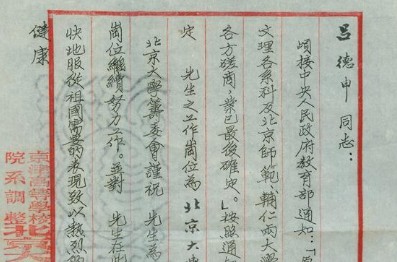 吕德申同志：
顷接中央人民政府教育部通知：「原
文理各系科及北京师范、辅仁两大
各方磋商，业已最後確定。」按照通知
定 先生之工作崗位為 北京大
北京大學籌委會謹祝 先生為
崗位繼續努力工作。並對 先生在此
快地服从祖國需要的表现致以热烈
健康
京津高等學校
院系調整北京大